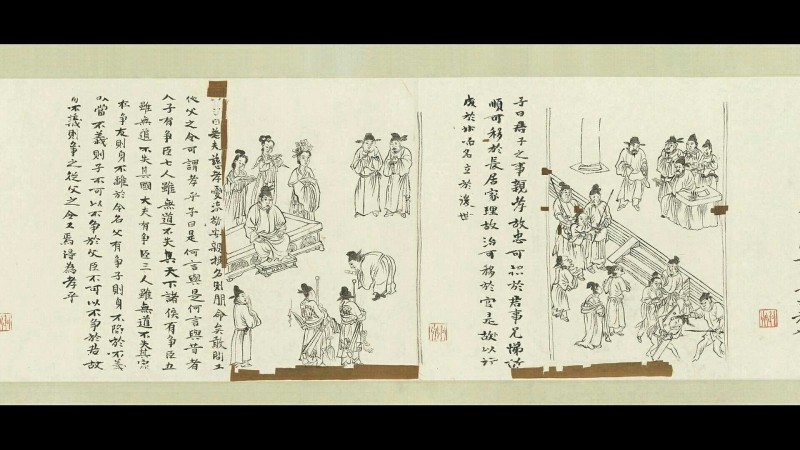 子曰君子之事親孝故忠可移於君事兄悌故
順可移於長居家理故治可移於官是故以行
成於內而名立於後世
若夫慈愛恭敬安親揚名則聞命矣敢問子
從父之令可謂孝乎子曰是何言與是何言與昔者
子有爭臣七人雖無道不失其天下諸侯有爭臣五
雖無道不失其國大夫有爭臣三人雖無道不失其家
有爭友則身不離於令名父有爭子則身不陷於不義
當不義則子不可以不爭於父臣不可以不爭於君故
不義則爭之從父之令又焉得為孝乎